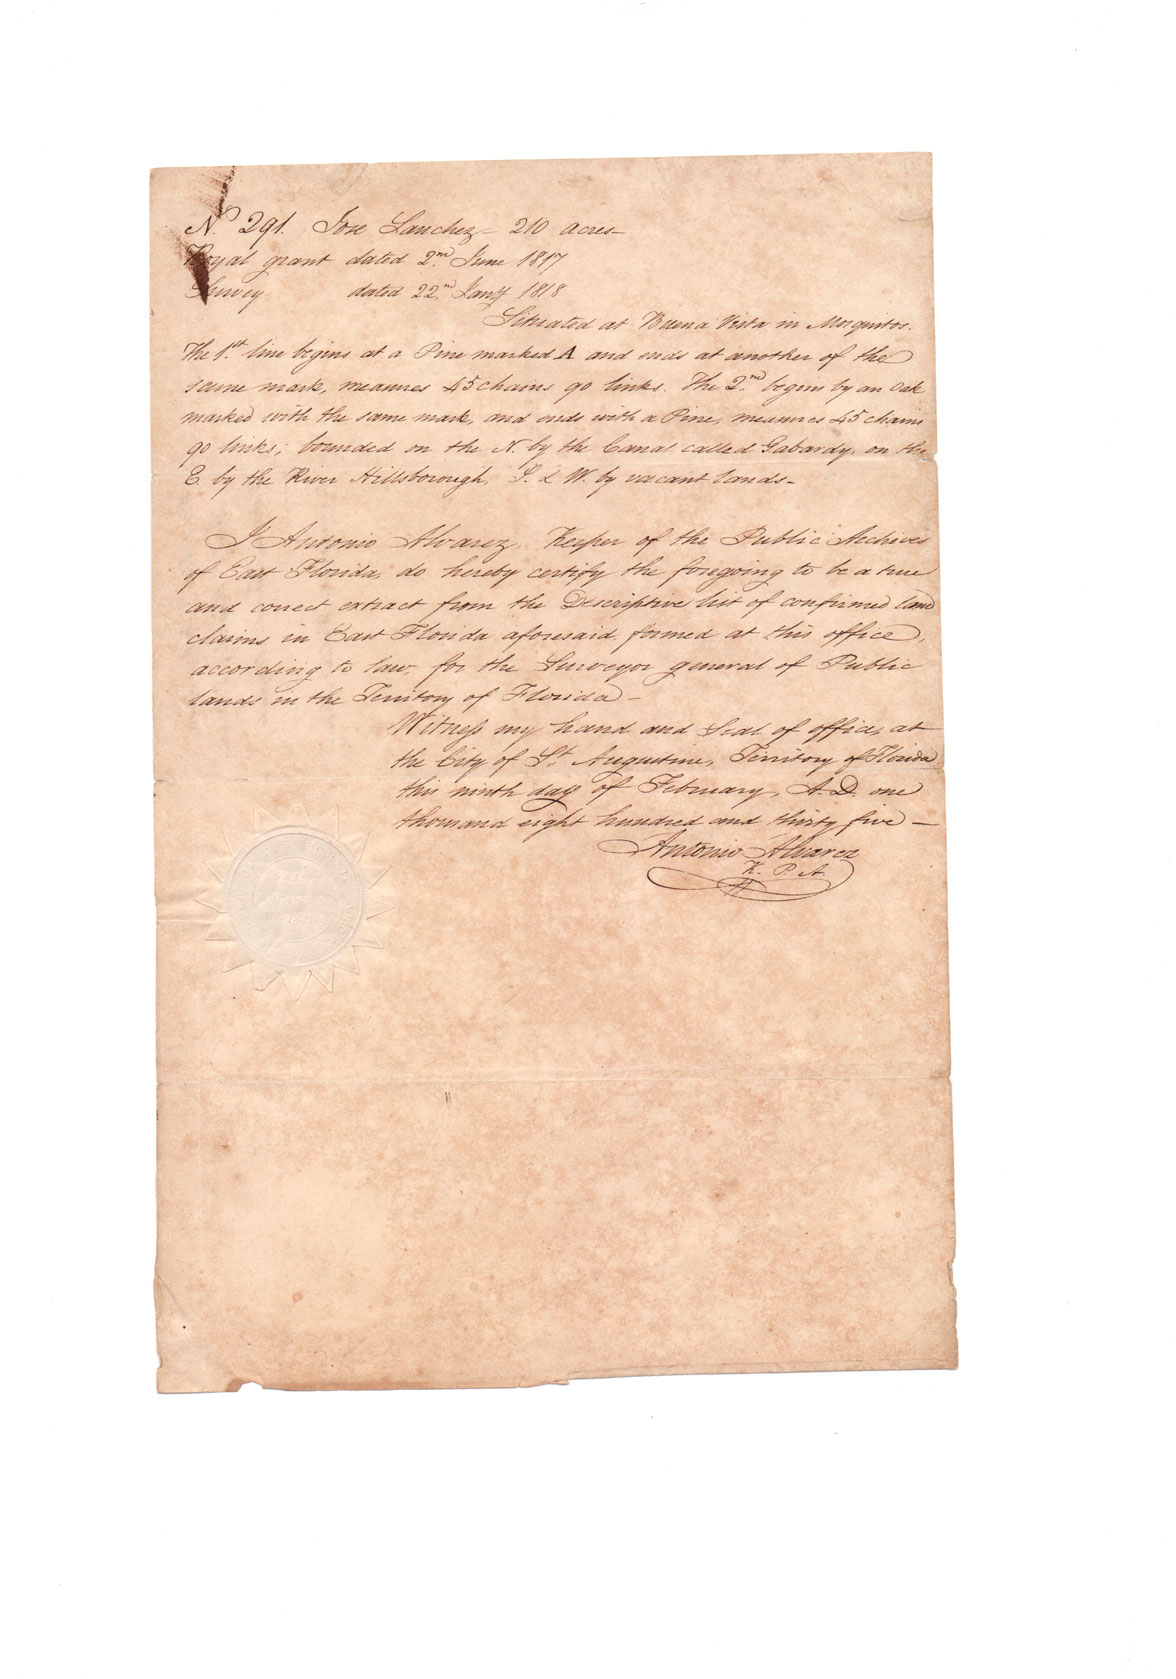 N.º 291. Jose Sanchez – 210 acres –
Royal grant dated 2.nd June 1817
Survey dated 22.nd Jan.y 1818
Situated at Buena Vista in Mosquitos.
The 1.st line begins at a Pine marked A and ends at another of the
same mark, measures 45 chains 90 links. The 2.nd begins by an Oak
marked with the same mark, and ends with a Pine, measures 45 chains
90 links; bounded on the N. by the Canal called Gabardy, on the
E. by the River Hillsborough, S. & W. by vacant lands –
I Antonio Alvarez, Keeper of the Public Archives
of East Florida, do hereby certify the foregoing to be a true
and correct extract from the Descriptive list of confirmed land
claims in East Florida aforesaid formed at this office,
according to law, for the Surveyor general of Public
lands in the Territory of Florida –
Witness my hand and Seal of office, at
the City of St. Augustine, Territory of Florida
this ninth day of February, A.D. one
thousand eight hundred and thirty five –
Antonio Alvarez
K. P. A.